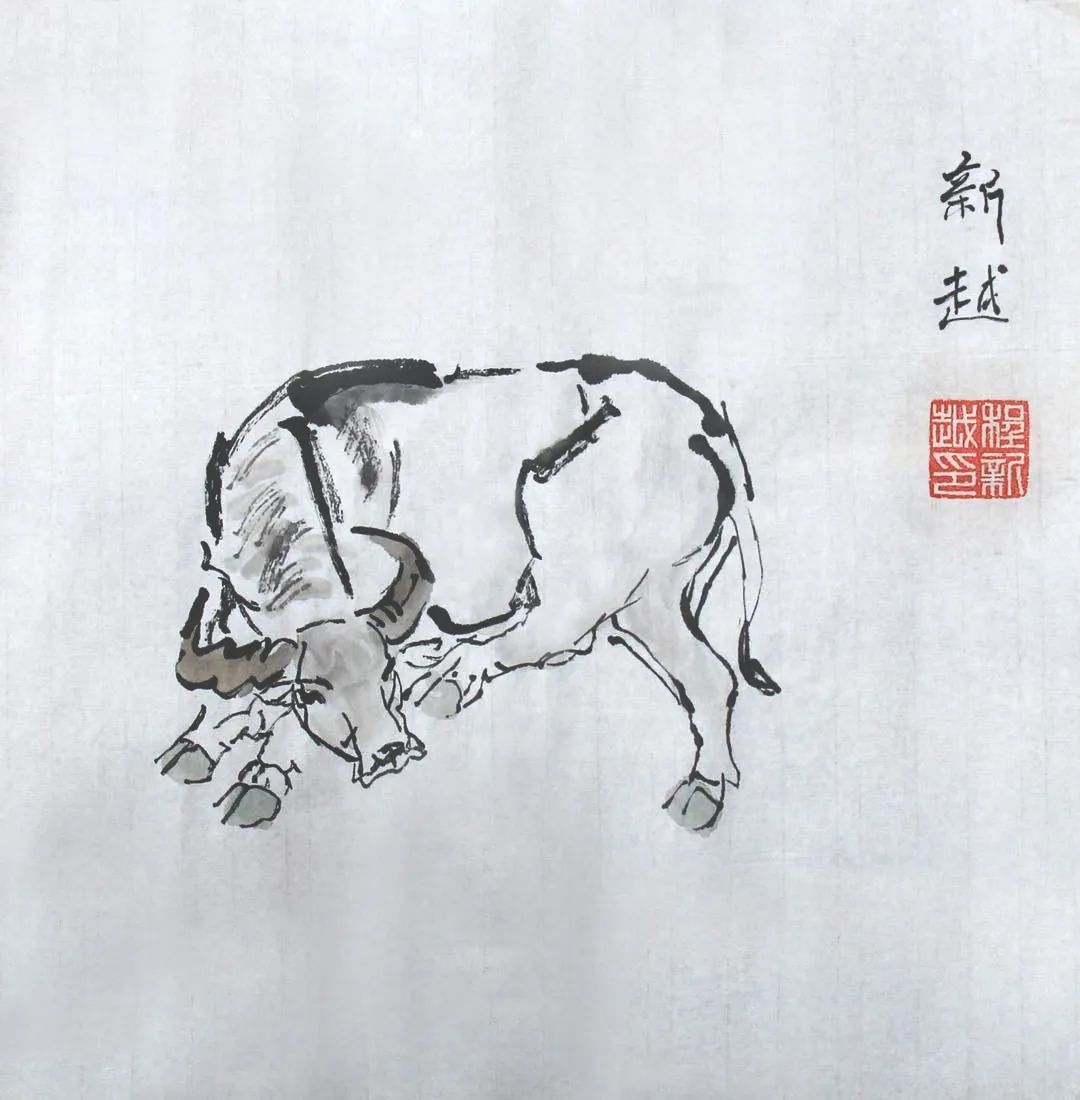 新越
程新越印